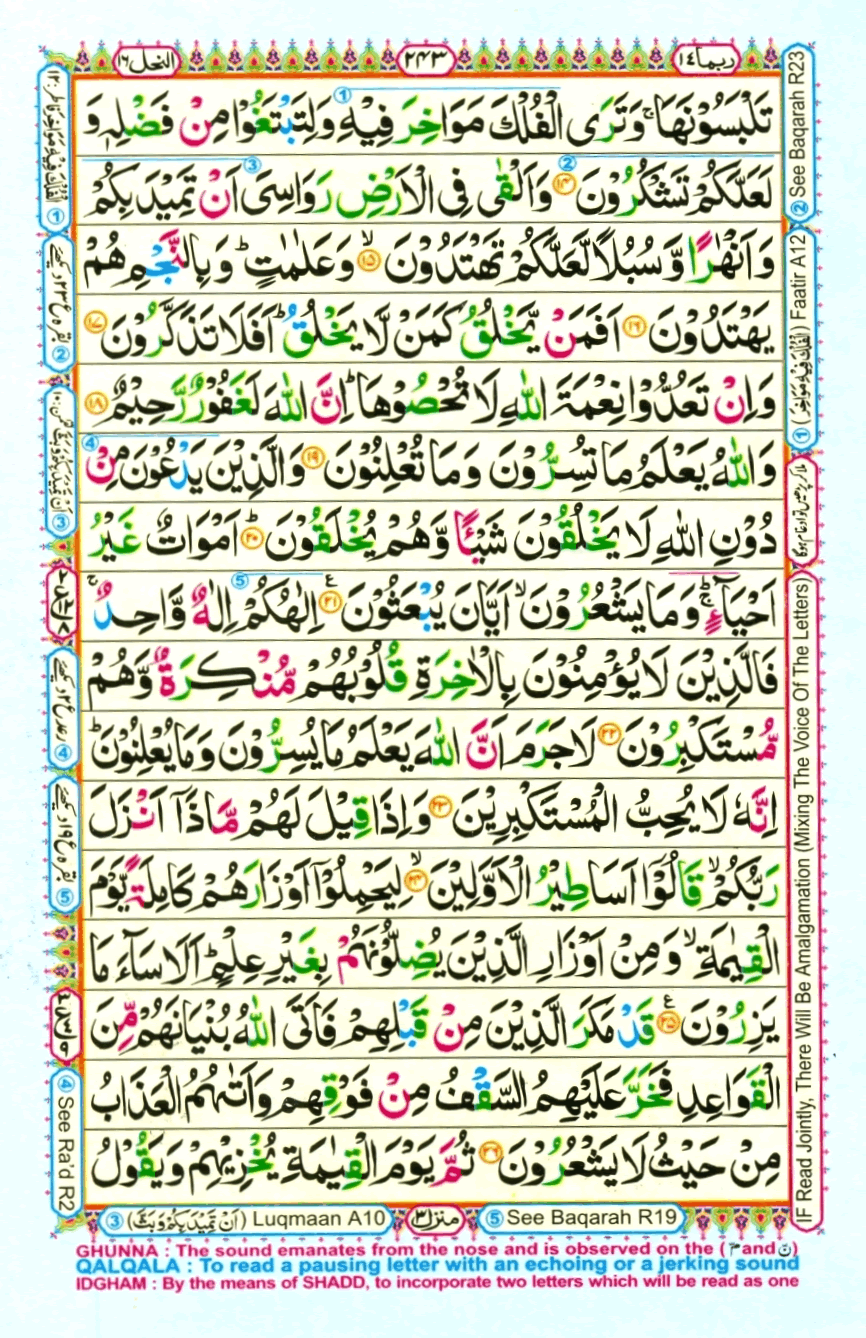 النحل ١٦
٢٤٣
ربما ١٤
تَلْبَسُوْنَهَا ۚ وَتَرَى الْفُلْكَ مَوَاخِرَ فِيْهِ وَلِتَبْتَغُوْا مِنْ فَضْلِهٖ وَ
لَعَلَّكُمْ تَشْكُرُوْنَ ﴿۱۴﴾ وَاَلْقٰى فِى الْاَرْضِ رَوَاسِىَ اَنْ تَمِيْدَ بِكُمْ
وَاَنْهٰرًا وَّسُبُلًا لَّعَلَّكُمْ تَهْتَدُوْنَ ۙ﴿۱۵﴾ وَعَلٰمٰتٍ ؕ وَبِالنَّجْمِ هُمْ
يَهْتَدُوْنَ ﴿۱۶﴾ اَفَمَنْ يَّخْلُقُ كَمَنْ لَّا يَخْلُقُ ؕ اَفَلَا تَذَكَّرُوْنَ ﴿۱۷﴾
وَاِنْ تَعُدُّوْا نِعْمَةَ اللّٰهِ لَا تُحْصُوْهَا ؕ اِنَّ اللّٰهَ لَغَفُوْرٌ رَّحِيْمٌ ﴿۱۸﴾
وَاللّٰهُ يَعْلَمُ مَا تُسِرُّوْنَ وَمَا تُعْلِنُوْنَ ﴿۱۹﴾ وَالَّذِيْنَ يَدْعُوْنَ مِنْ
دُوْنِ اللّٰهِ لَا يَخْلُقُوْنَ شَيْئًا وَّهُمْ يُخْلَقُوْنَ ؕ﴿۲۰﴾ اَمْوَاتٌ غَيْرُ
اَحْيَآءٍ ۚ وَمَا يَشْعُرُوْنَ ۙ اَيَّانَ يُبْعَثُوْنَ ﴿۲۱﴾ اِلٰهُكُمْ اِلٰهٌ وَّاحِدٌ ۚ
فَالَّذِيْنَ لَا يُؤْمِنُوْنَ بِالْاٰخِرَةِ قُلُوْبُهُمْ مُّنْكِرَةٌ وَّهُمْ
مُّسْتَكْبِرُوْنَ ﴿۲۲﴾ لَا جَرَمَ اَنَّ اللّٰهَ يَعْلَمُ مَا يُسِرُّوْنَ وَمَا يُعْلِنُوْنَ ؕ
اِنَّهٗ لَا يُحِبُّ الْمُسْتَكْبِرِيْنَ ﴿۲۳﴾ وَاِذَا قِيْلَ لَهُمْ مَّاذَآ اَنْزَلَ
رَبُّكُمْ ۙ قَالُوْٓا اَسَاطِيْرُ الْاَوَّلِيْنَ ۙ﴿۲۴﴾ لِيَحْمِلُوْٓا اَوْزَارَهُمْ كَامِلَةً يَّوْمَ
الْقِيٰمَةِ ۙ وَمِنْ اَوْزَارِ الَّذِيْنَ يُضِلُّوْنَهُمْ بِغَيْرِ عِلْمٍ ؕ اَلَا سَآءَ مَا
يَزِرُوْنَ ﴿۲۵﴾ قَدْ مَكَرَ الَّذِيْنَ مِنْ قَبْلِهِمْ فَاَتَى اللّٰهُ بُنْيَانَهُمْ مِّنَ
الْقَوَاعِدِ فَخَرَّ عَلَيْهِمُ السَّقْفُ مِنْ فَوْقِهِمْ وَاَتٰىهُمُ الْعَذَابُ
مِنْ حَيْثُ لَا يَشْعُرُوْنَ ﴿۲۶﴾ ثُمَّ يَوْمَ الْقِيٰمَةِ يُخْزِيْهِمْ وَيَقُوْلُ
② See Baqarah R23
① (الْفُلْكَ فِيْهِ مَوَاخِرَ) Faatir A12
IF Read Jointly, There Will Be Amalgamation (Mixing The Voice Of The Letters)
④ See Ra'd R2
③ (اَنْ تَمِيْدَ بِكُمْ وَبَثَّ) Luqmaan A10
منزل ٣
⑤ See Baqarah R19
GHUNNA : The sound emanates from the nose and is observed on the ( مّ and نّ )
QALQALA : To read a pausing letter with an echoing or a jerking sound
IDGHAM : By the means of SHADD, to incorporate two letters which will be read as one